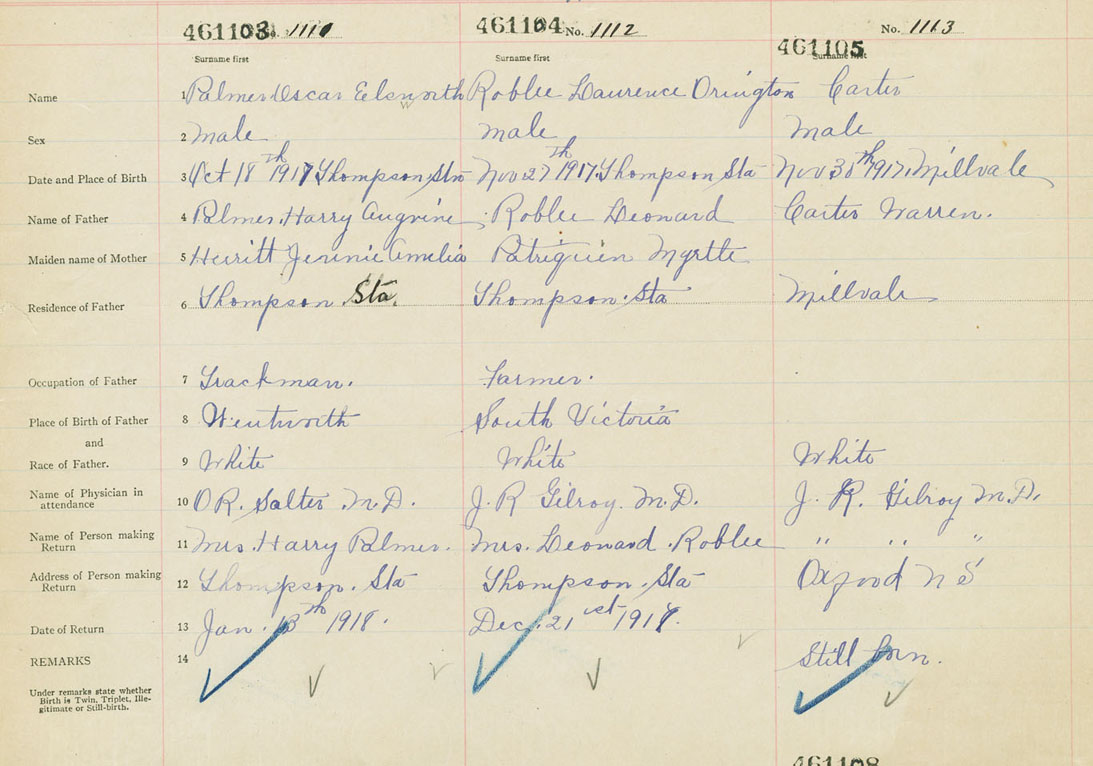 461103 No. 1110 461104 No. 1112 461105 No. 1113
Surname first Surname first Surname first
Name 1 Palmer Oscar Elsworth Roblee Laurence Orington Carter
Sex 2 Male male Male
Date and Place of Birth 3 Oct 18th 1917 Thompson Stn Nov 27th 1917. Thompson Sta Nov 30th 1917. Millvale
Name of Father 4 Palmer. Harry Roblee Leonard Carter Warren.
Maiden name of Mother 5 Jennie Amelia Patriquin Myrtle
Residence of Father 6 Thompson Sta. Thompson. Sta Millvale
Occupation of Father 7 Trackman. Farmer.
Place of Birth of Father 8 Wentworth South Victoria
and
Race of Father. 9 White White White
Name of Physician in
attendance 10 O.R. Salter. M.D. J. R Gilroy. M.D. J. R. Gilroy M.D.
Name of Person making
Return 11 Mrs. Harry Palmer. Mrs. Leonard. Roblee " " "
Address of Person making
Return 12 Thompson. Sta Thompson. Sta Oxford N S
Date of Return 13 Jan. 13th 1918. Dec. 21st 1917.
REMARKS 14 Still born.
Under remarks state whether
Birth is Twin, Triplet, Ille-
gitimate or Still-birth.
461108